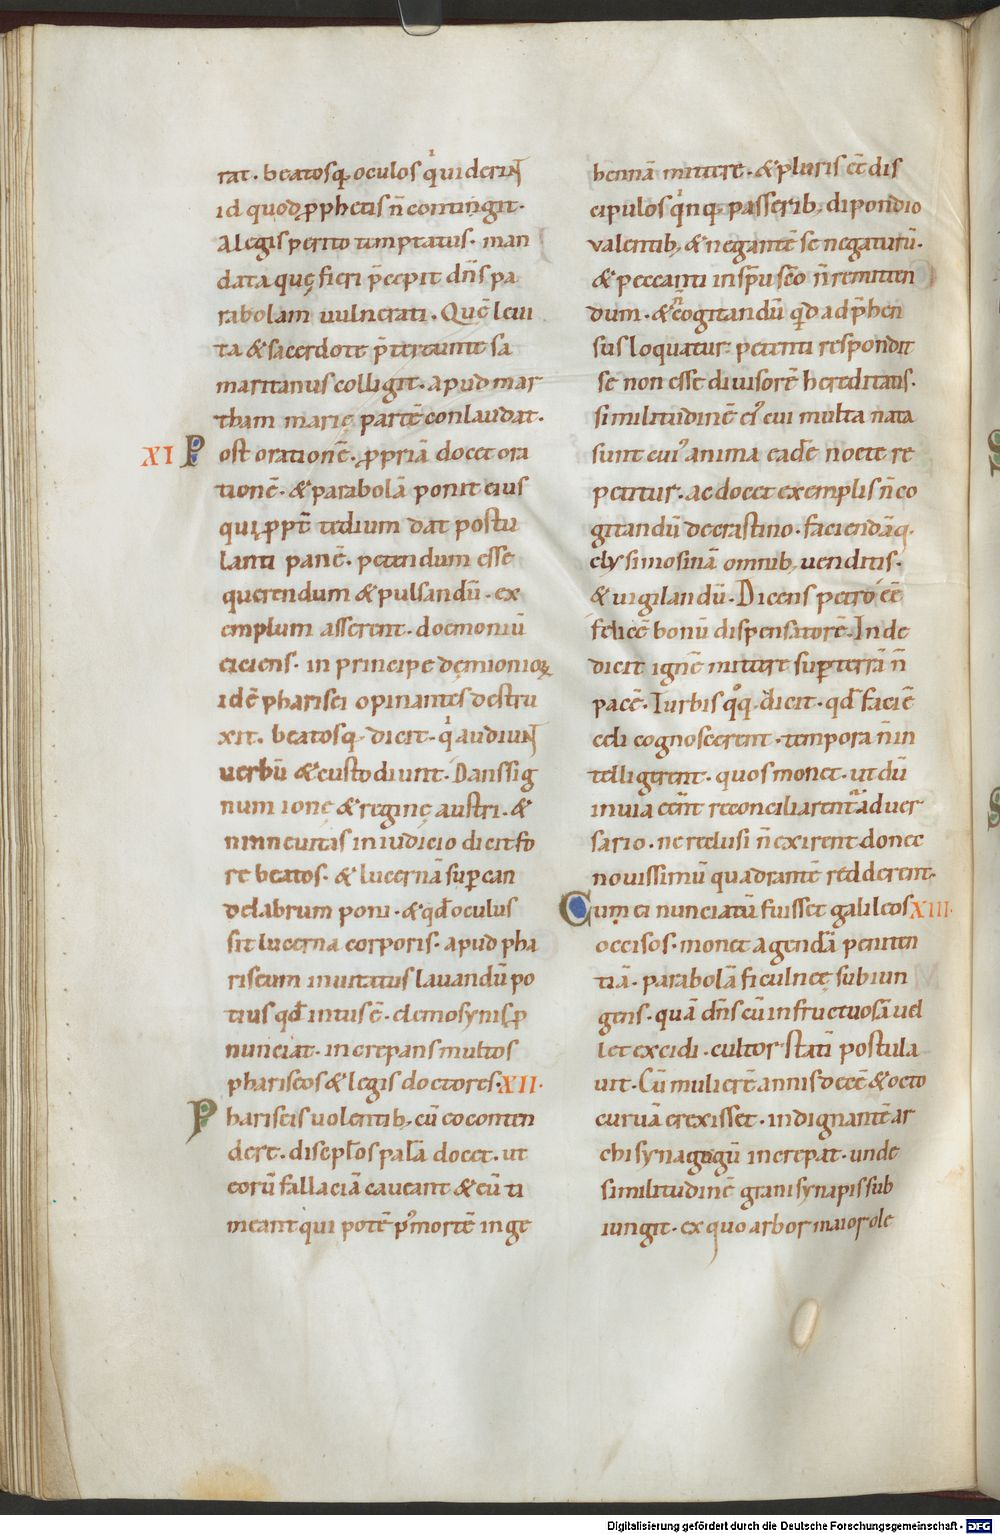 rat· beatosq; oculos qͥ uiderint
id quod ꝓphetis n̄ contingit·
A legisperito temptatus· man
data quę fieri p̄cepit dn̄s pa
rabolam uulnerati· Quē leui
ta & sacerdote p̄tereunte sa
maritanus colligit· apud mar
tham marię partē conlaudat·
XI Post orationē· ꝓpriā docet ora
tionē· & parabolā ponit eius
qui ꝓpt̄ tedium dat postu
lanti panē· petendum esse
querendum & pulsandū· ex
emplum asserens· doemoniū
eiciens· in principe dęmonioꝝ
idē pharisei opinantes destru
xit· beatosq; dicit· qͥ audiunt
uerbū & custodiunt· Dans sig
num ionę & reginę austri· &
nineuitas in iudicio dicit fo
re beatos· & lucernā suꝑ can
delabrum poni· & qd̄ oculus
sit lucerna corporis· apud pha
riseum inuitatus lauandū po
tius qd̄ intus ē· elemosynis ꝓ
nunciat· increpans multos
phariseos & legis doctores· XII·
Phariseis uolentib; cū eo conten
dere· discipl̄os palā docet· ut
eorū fallaciā caueant & eū ti
meant qui potē p᷒ mortē in ge
hennā mittere· & pluris eēt dis
cipulos qͥnq; passerib; dipondio
valentib; & negantē se negaturū·
& peccanti in sp̄u sc̄o n̄ remitten
dum· & n̄ cogitandū qd ad p̄hen
sus loquatur· petenti respondit
se non esse diuisorē hereditatis·
similitudinē ei᷒ cui multa nata
sunt cui᷒ anima eadē nocte re
petitur· ac docet exemplis n̄ co
gitandū de crastino· faciendāq;
elysimosinā omnib; uenditis·
& uigilandū· Dicens petro eē
felicē bonū dispensatorē· Inde
dicit ignē mittere suꝑ terrā n̄
pacē· Turbis qͦq; dicit· qd̄ faciē
celi cognoscerent· tempora n̄ in
telligerent· quos monet· ut dū
in uia eēnt reconciliarent̄ aduer
sario· ne reclusi n̄ exirent donec
nouissimū quadrantē redderent·
Cum ei nunciatū fuisset galileos XIII·
occisos· monet agendā peniten
tiā· parabolā ficulnee subiun
gens· quā dn̄s cū infructuosā uel
let excidi· cultor statī postula
uit· Cū mulierē annis decē & octo
curuā erexisset· indignantē ar
chisynagogū increpat· unde
similitudinē grani synapis sub
iungit· ex quo arbor maior ole
Digitalisierung gefördert durch die Deutsche Forschungsgemeinschaft - DFG